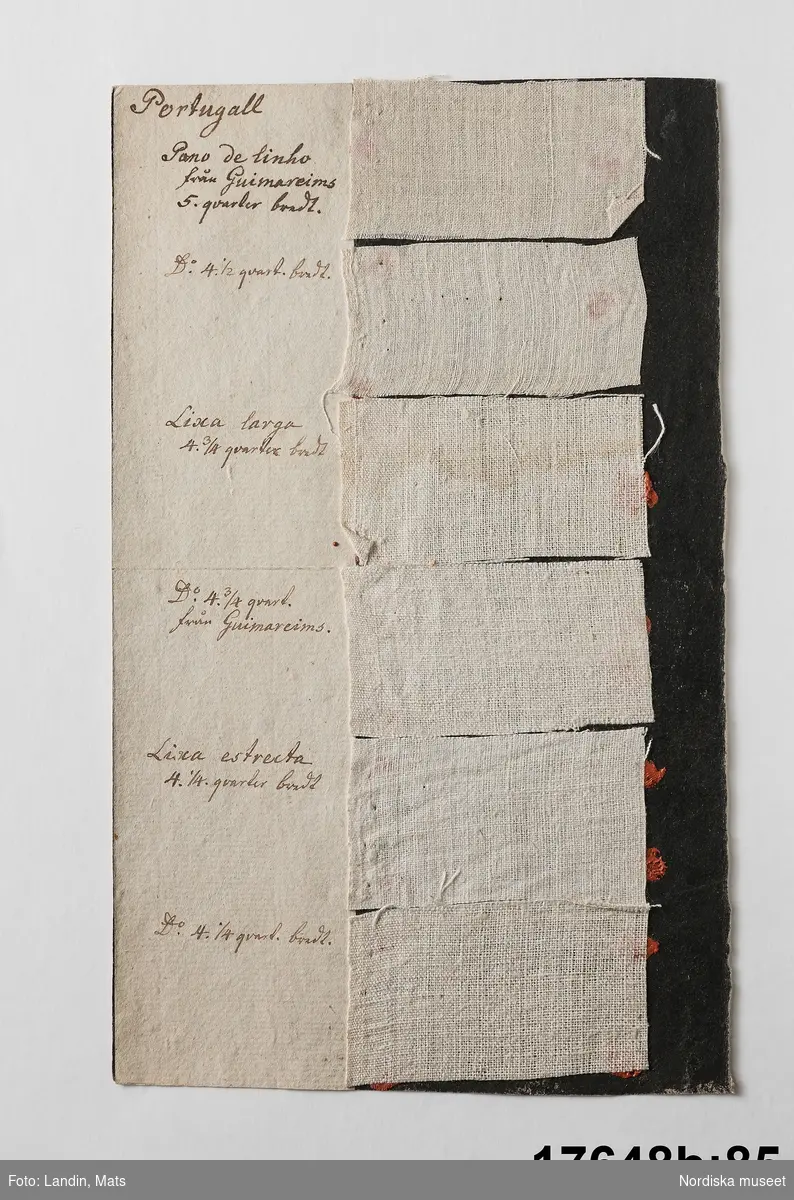 Portugall
Pano de linho
från Guimareims
5. quarter bredt.
Do. 4. 1/2 quart. bredt.
Lixa larga
4. 3/4 quarter bredt
Do. 4. 3/4 quart.
från Guimareims.
Lixa estrecta
4. 1/4. quarter bredt
Do. 4. 1/4 quart. bredt.
17648b:85
Foto: Landin, Mats
Nordiska museet